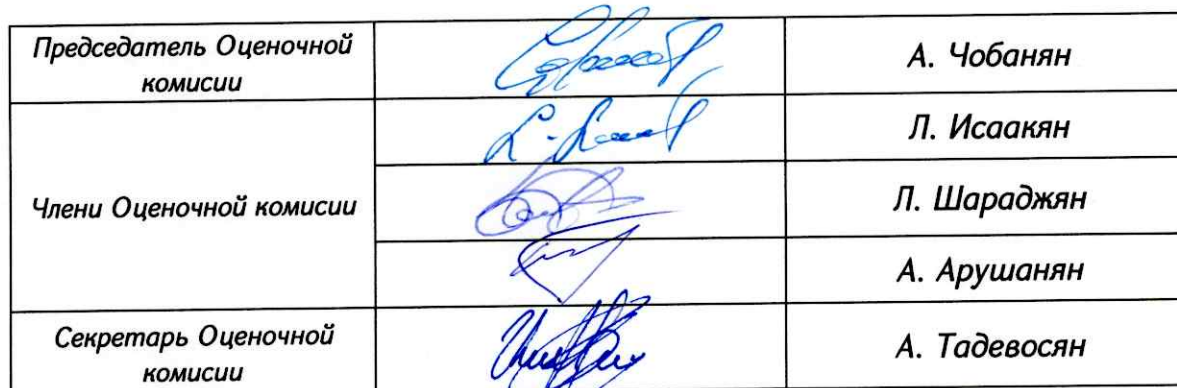 Председатель Оценочной
комисии
А. Чобанян
Члени Оценочной комисии
Л. Исаакян
Л. Шараджян
А. Арушанян
Секретарь Оценочной
комисии
А. Тадевосян